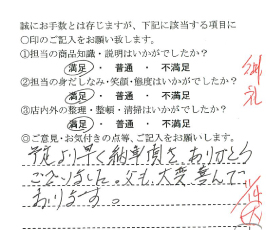 誠にお手数とは存じますが、下記に該当する項目に
○印のご記入をお願い致します。
①担当の商品知識・説明はいかがでしたか?
満足 ・ 普通 ・ 不満足
②担当の身だしなみ・笑顔・態度はいかがでしたか?
満足 ・ 普通 ・ 不満足
③店内外の整理・整頓・清掃はいかがでしたか?
満足 ・ 普通 ・ 不満足
◎ご意見・お気付きの点等、ご記入をお願いします。
予定より早く納車頂き、ありがとう
ございました。父も大変喜んで
おります。
御礼
1/14